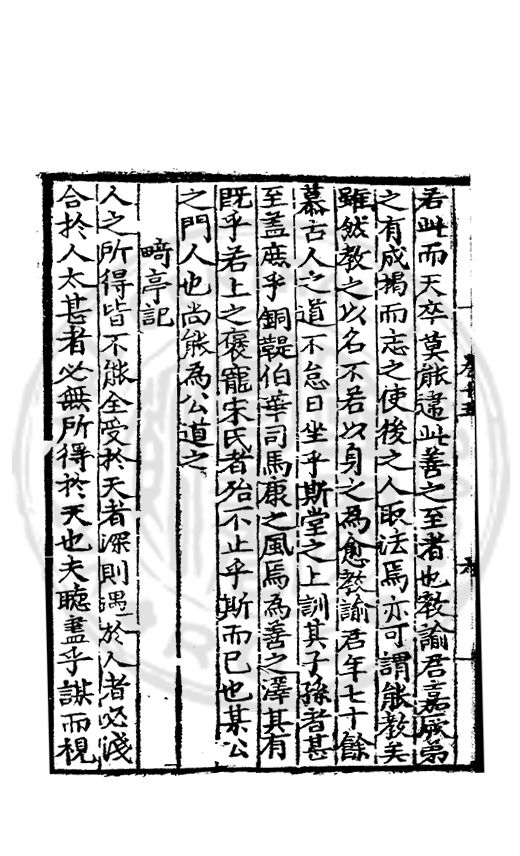 若此而天卒莫能違此善之至者也教諭君嘉厥弟
之有成揭而志之使後之人取法焉亦可謂能教矣
雖然教之以名不若以身之為愈教諭君年七十餘
慕古人之道不怠日坐乎斯堂之上訓其子孫者甚
至蓋庶乎銅鞮伯華司馬康之風焉為善之澤其有
既乎若上之褒寵宋氏者殆不止乎斯而已也某公
之門人也尚能為公道之
畸亭記
人之所得皆不能全受於天者深則遇於人者必淺
合於人太甚者必無所得於天也夫聰盡乎謀而視